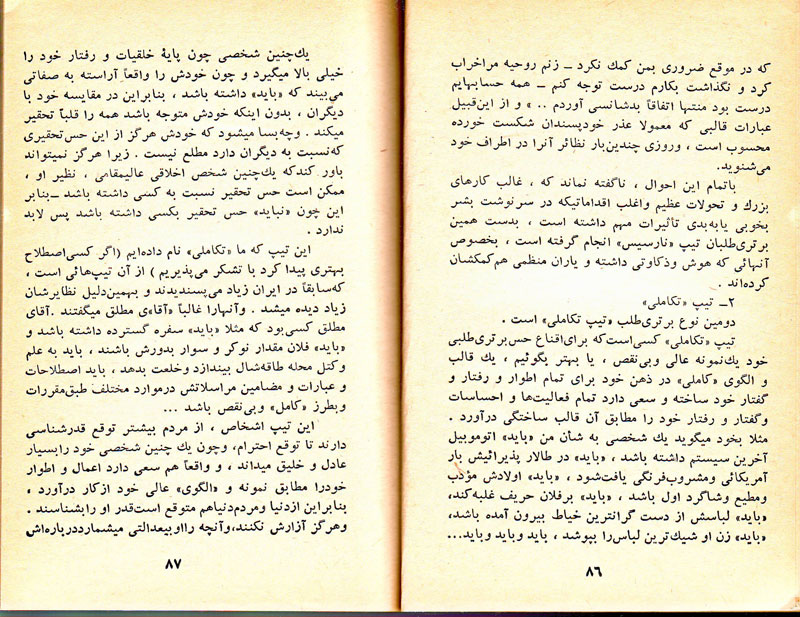 که در موقع ضروری بمن کمك نکرد ــ زنم روحیه مراخراب
کرد و نگذاشت بکارم درست توجه کنم ــ همه حسابهایم
درست بود منتها اتفاقاً بدشانسی آوردم .. » و از این‌قبیل
عبارات قالبی که معمولا عذر خودپسندان شکست خورده
محسوب است ، وروزی چندین‌بار نظائر آنرا در اطراف خود
می‌شنوید.
باتمام این احوال ، ناگفته نماند که ، غالب کارهای
بزرك و تحولات عظیم واغلب اقداماتیکه در سرنوشت بشر
بخوبی یابه‌بدی تأثیرات مهم داشته است ، بدست همین
برتری‌طلبان تیپ «نارسیس» انجام گرفته است ، بخصوص
آنهائی که هوش وذکاوتی داشته و یاران منظمی هم‌کمکشان
کرده‌اند .
۲ــ تیپ «تکاملی»
دومین نوع برتری‌طلب «تیپ تکاملی» است .
تیپ «تکاملی» کسی‌است‌که برای‌اقناع حس‌برتری‌طلبی
خود یك‌نمونه عالی وبی‌نقص ، یا بهتر بگوئیم ، یك قالب
و الگوی «کاملی» در ذهن خود برای تمام اطوار و رفتار و
گفتار خود ساخته و سعی دارد تمام فعالیت‌ها و احساسات
وگفتار و رفتار خود را مطابق آن قالب ساختگی درآورد .
مثلا بخود میگوید یك شخصی به شأن من «باید» اتوموبیل
آخرین سیستم داشته باشد ، «باید» در طالار پذیرائیش بار
آمریکائی ومشروب‌فرنگی یافت‌شود ، «باید» اولادش مؤدب
ومطیع وشاگرد اول باشد ، «باید» برفلان حریف غلبه‌کند،
«باید» لباسش از دست گرانترین خیاط بیرون آمده باشد،
«باید» زن او شیك‌ترین لباس‌را بپوشد ، باید وباید وباید...
۸۶
یك‌چنین شخصی چون پایهٔ خلقیات و رفتار خود را
خیلی بالا میگیرد و چون خودش را واقعاً آراسته به صفاتی
می‌بیند که «باید» داشته باشد ، بنابراین در مقایسه خود با
دیگران ، بدون اینکه خودش متوجه باشد همه را قلباً تحقیر
میکند . وچه‌بسا میشود که خودش هرگز از این حس‌تحقیری
که‌نسبت به دیگران دارد مطلع نیست . زیرا هرگز نمیتواند
باور کندکه یك‌چنین شخص اخلاقی عالیمقامی ، نظیر او ،
ممکن است حس تحقیر نسبت به کسی داشته باشد ــ بنابر
این چون «نباید» حس تحقیر بکسی داشته باشد پس لابد
ندارد .
این تیپ که ما «تکاملی» نام داده‌ایم (اگر کسی‌اصطلاح
بهتری پیدا کرد با تشکر می‌پذیریم ) از آن تیپ‌هائی است ،
که‌سابقاً در ایران زیاد می‌پسندیدند و بهمین‌دلیل نظایرشان
زیاد دیده میشد . وآنهارا غالباً «آقا»ی مطلق میگفتند .آقای
مطلق کسی‌بود که مثلا «باید» سفره گسترده داشته باشد و
«باید» فلان مقدار نوکر و سوار بدورش باشند ، باید به علم
وکتل محله طاقه‌شال بیندازد وخلعت بدهد ، باید اصطلاحات
و عبارات و مضامین مراسلاتش درموارد مختلف طبق‌مقررات
وبطرز «کامل» وبی‌نقص باشد ...
این تیپ اشخاص ، از مردم بیشتر توقع قدرشناسی
دارند تا توقع احترام، وچون یك چنین شخصی خود رابسیار
عادل و خلیق میداند ، و واقعاً هم سعی دارد اعمال و اطوار
خودرا مطابق نمونه و «الگوی» عالی خود ازکار درآورد ،
بنابراین ازدنیا ومردم‌دنیاهم متوقع است‌قدر او رابشناسند .
وهرگز آزارش نکنند،وآنچه رااوبیعدالتی میشمارددرباره‌اش
۸۷